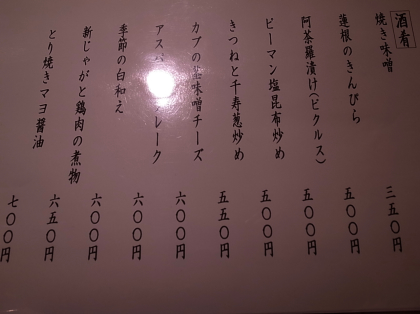 酒肴
焼き味噌 三五〇円
蓮根のきんぴら 五〇〇円
阿茶羅漬け(ピクルス) 五〇〇円
ピーマン塩昆布炒め 五〇〇円
きつねと千寿葱炒め 五五〇円
カブの味噌チーズ 六〇〇円
アスパ レーク 六〇〇円
季節の白和え 六〇〇円
新じゃがと鶏肉の煮物 六五〇円
とり焼きマヨ醤油 七〇〇円